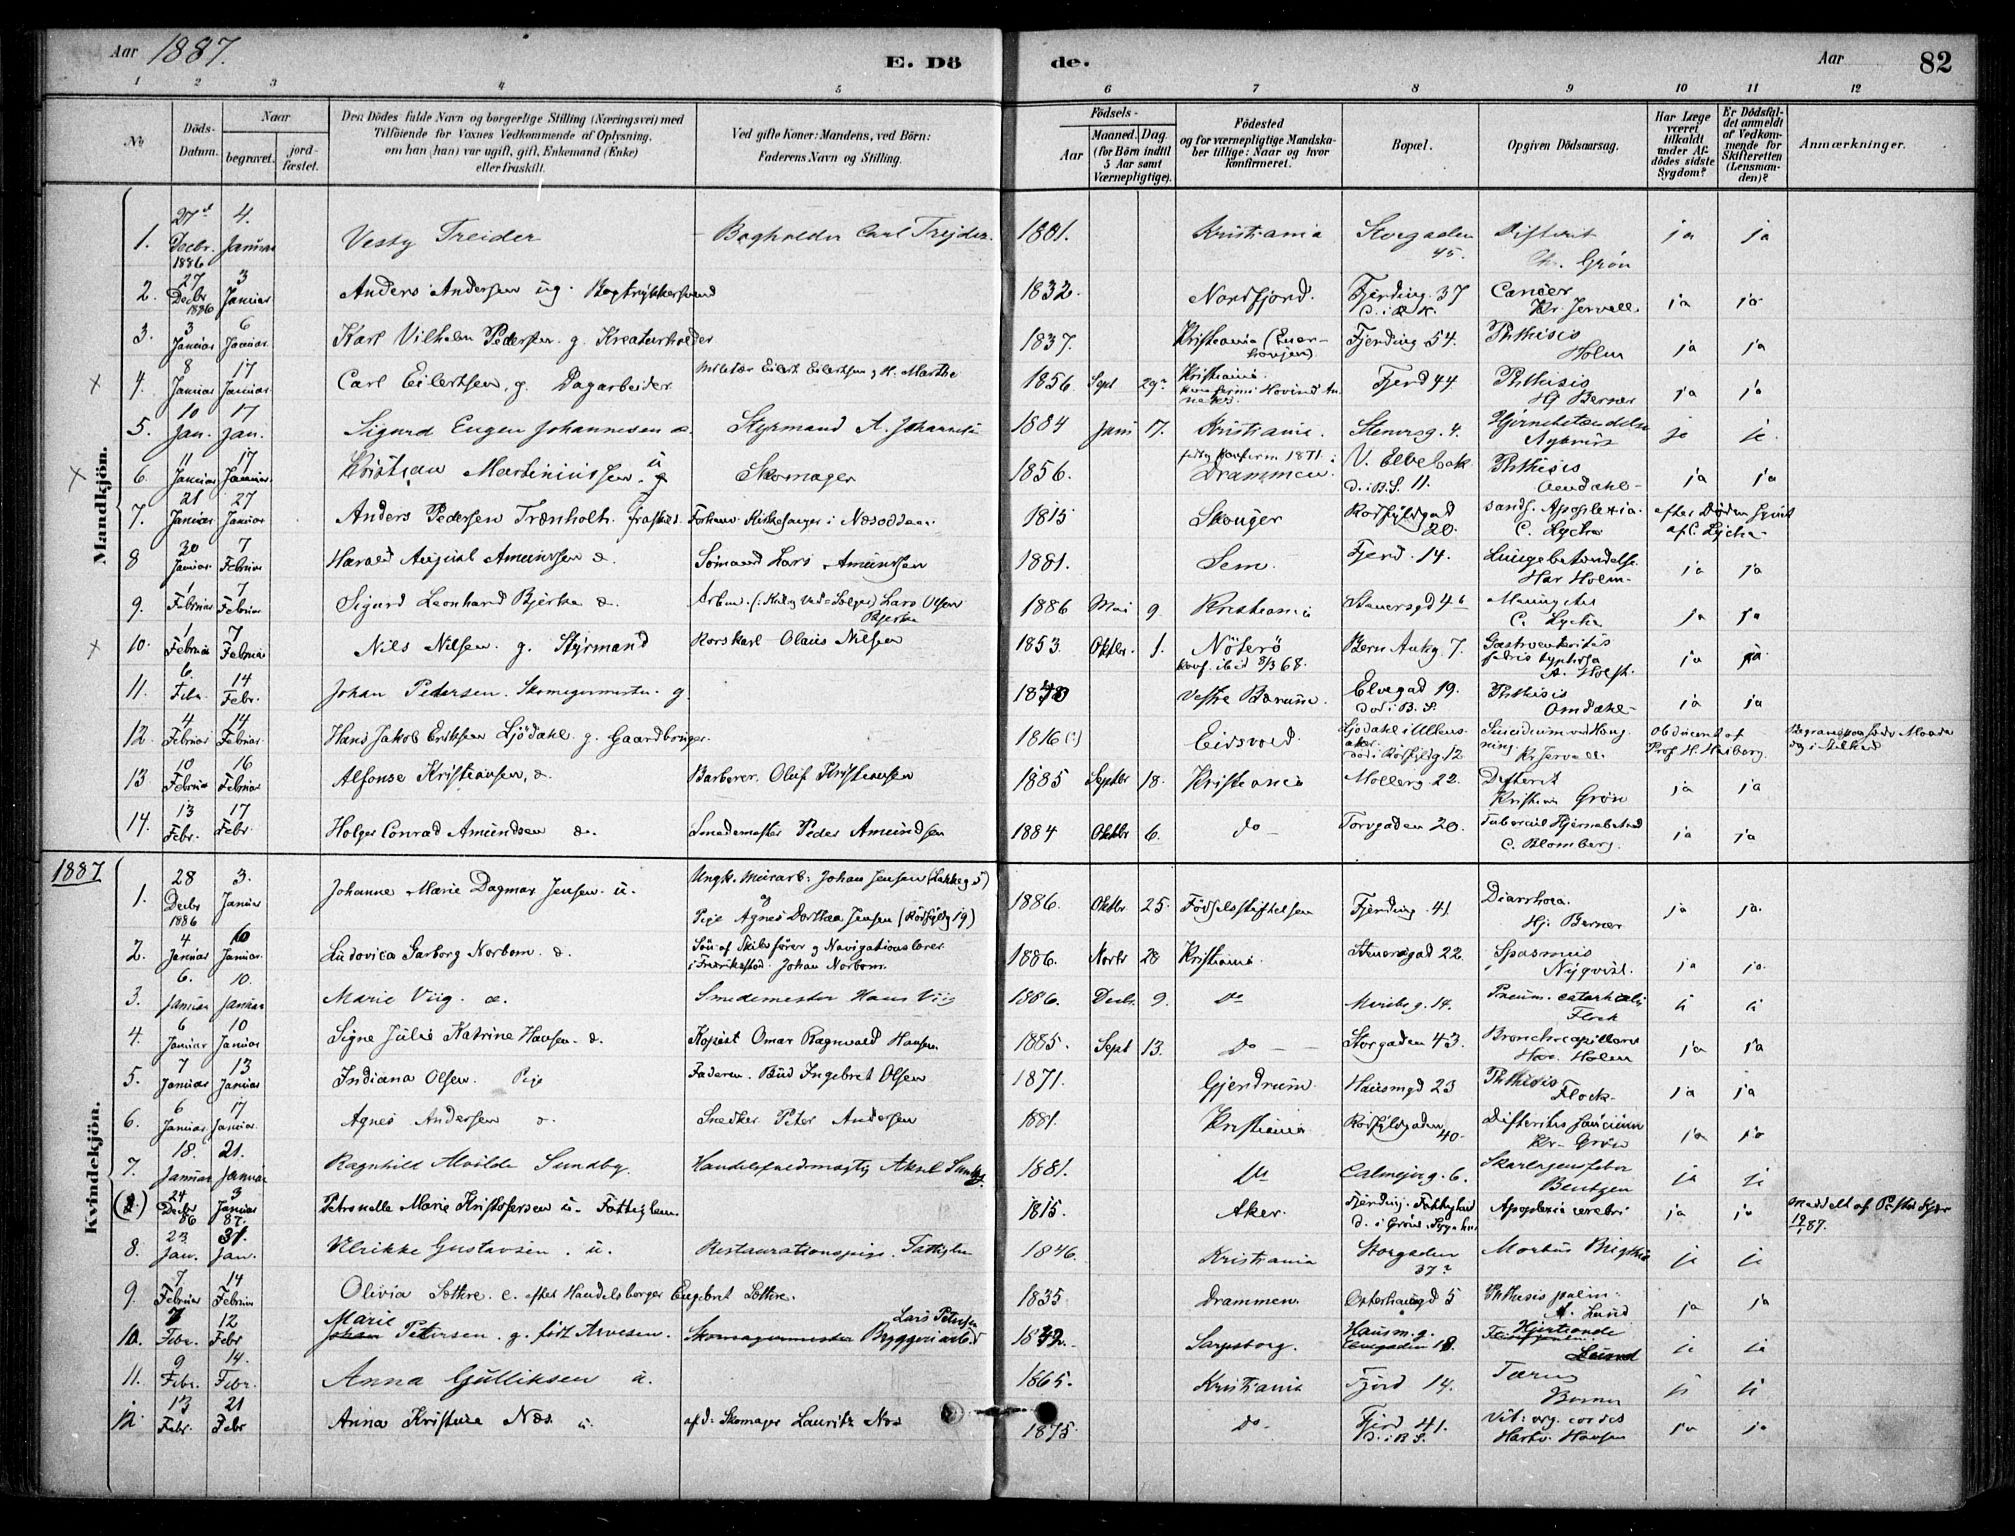 Aar 1887.
E. Dö
de.
Aar
82
1 2 3 4 5 6 7 8 9 10 11 12
No
Döds-Datum.
Naar
begravet.
jord-fæstet.
Den Dödes fulde Navn og borgerlige Stilling (Næringsvei) med
Tilföiende for Voxnes Vedkommende af Oplysning,
om han (hun) var ugift, gift, Enkemand (Enke)
eller fraskilt.
Ved gifte Koner: Mandens, ved Börn:
Faderens Navn og Stilling.
Födsels-
Aar
Maaned. Dag.
(for Börn indtil
5 Aar samt
Værnepligtige).
Födested
og for værnepligtige Mandska-
ber tillige: Naar og hvor
konfirmeret.
Bopæl.
Opgiven Dödsaarsag.
Har Læge
været
tilkaldt
under Af-
dödes sidste
Sygdom?
Er Dödsfal-
det anmeldt
af Vedkom-
mende for
Skifteretten
(Lensman-
den)?
Anmærkninger.
Mandkjön.
1. 27 Decbr. 1886 4. Januar Vesty Treider Bogholder Carl Trejder. 1881. Kristiania Storgaden 45. Difterit Grön ja ja
2. 27 Decbr 1886 3 Januar Anders Andersen ug. Bogtrykkersvend 1832. Nordfjord. Fjerding. 37 Cancer Kr Jervell. ja ja
3. 3 Januar 6 Januar Karl Vilhelm Pedersen g. Kreaturholder 1837. Kristiania Fjerding 54. Phthisis Holm ja ja
× 4. 8 Januar 17 Januar Carl Eilertsen. g. Dagarbeider Eilert Eilertsen g H. Marthe 1856. Sept 29 Kristiania. Fjerd 44 Phthisis Hj Berner ja ja
5. 10 Jan. 17 Jan. Sigurd Eugen Johannesen Styrmand A. Johannesen 1884 Juni 17. Kristiania. Stenersg. 4. Hjernebetændelse ja ja
× 6. 11 Januar 17 Januar Kristian Martiniussen u g Skomager 1856. Konfirm 1871 i Drammen. V. Elvebak 11. D. i B. S. Phthisis Omdahl ja ja
7. 21 Januar 27 Januar Anders Pedersen Trænholt. fraskilt. Forhenv. Kirkesanger i Næsodden 1815 Skouger Rødfyldgad 20. sandf. Apoplexia. C. Lycke efter Döden synet af C. Lycke
8 30 Januar 7 Februar Harald August Amundsen Sömand Lars Amundsen 1881. Sem. Fjerd. 14. Lungebetændelse. Har Holm ja ja
9. 1 Februar 7 Februar Sigurd Leonhard Bjerke Lars Olsen Bjerke 1886 Mai 9. Kristiania 46 C. Lycke ja ja
× 10. 1 Februar 7 Februar Nils Nilsen. g. Styrmand Olaus Nilsen 1853. Oktbr. 1. Nöterö konf. ibid 8/3 68. Bern Ankg 7. Gastroenteritis A. Holst. ja ja
11. 6. Febr. 14 Febr. Johan Pedersen. Skomagermester. g. Vestre Bærum Elvegad 19. Död i B. S. Phthisis Omdahl ja ja
12. 4 Februar 14 Februar Hans Jakob Eriksen Ljödahl g. Gaardbruger. 1816 Eidsvold. Ljödahl i Ullensaker. Kr Jervell Obduceret af Prof. H. Heiberg.
13 10 Februar 16 Februar Alfonse Kristiansen, Barberer. Oluf Kristiansen 1885 Septbr 18. Kristiania Möllerg. 22. Difterit Kristian Grön ja ja
14. 13 Febr. 17 Febr. Holger Conrad Amundsen Smedemester Peder Amundsen 1884 Oktbr 6. do Torvgaden 20. C. Blomberg. ja ja
1887
Kvindekjön.
1. 28 Decbr 1886 3. Januar Johanne Marie Dagmar Jensen. u. Ungk. Murarb. Johan Jensen (Lakkeg 5) og Pige Agnes Dorthea Jensen (Rödfyldg 19) 1886. Oktbr 25. Födselsstiftelsen Fjerding. 41 Diarrhoea. Hj. Berner ja ja.
2. 4 Januar 10 Januar. Ludovica Garborg Norbom. Skibsförer g Navigationslærer i Fredrikstad. Johan Norbom. 1886. Novbr 28 Kristiania Stenersgad 22. Spasmus Nyqvist. ja ja.
3. 6. Januar 10. Januar Marie Viig. Smedemester Hans Viig 1886. Decbr. 9. Do 14. Pneum. catarhalis Flock ja ja
4. 6 Januar 10 Januar Signe Julie Katrine Hansen. Kopist Omar Ragnvald Hansen. 1885. Sept 13. Do Storgaden 43. Har. Holm ja ja
5. 7 Januar 13 Januar Indiana Olsen. Pige Faderen. Bud Ingebret Olsen 1871. Gjerdrum. Hausmgd 23 Phthisis Flock. ja ja
6. 6 Januar 17 Januar. Agnes Andersen Snedker Peter Andersen 1881. Kristiania Rödfyldgaden 40. Difteritis faucium Kr. Grön ja ja
7. 18. Januar 21. Januar Ragnhild Alvilde Sundby. Handelsfuldmægtig Aksel Sundby. 1881. Do Calmeyerg. 6. Skarlagensfeber Bentzen ja ja
24 Decbr 86 3 Januar 87. Petronelle Marie Kristofersen u. Fattiglem. 1815. Aker. Fjerding. Apoplexia cerebri ja ja meddelt af 87.
8. 23 Jan. 31. Jan. Ulrikke Gustavsen. u. Restaurationspige. Fattiglem 1846. Kristiania Storgaden 37 Morbus Brigthii ja ja
9. 7. Februar 14 Februar Olivia Sethre. e. efter Handelsborger Engebret Sethre. 1835. Drammen. Osterhausgd 5 Phthisis pulm. A. Lund ja ja
10. 7 Febr. 12 Febr Marie Petersen. g. födt Arvesen. Lars Petersen Skomagermester Bryggeriarbd 1832. Sarpsborg. Hausm. g. 18. Hjertonde Lund ja ja
11. 9 Febr. 14. Febr. Anna Gulliksen u. 1865. Kristiania Fjerd 14. Tæring Berner ja ja
12. 13 Febr. 21 Febr Anna Kristine Næs. u. afd: Skomager Lauritz Næs 1875. do Fjerd 41. D. i B. S. Vit: org. cordis Hartv. Hansen ja ja